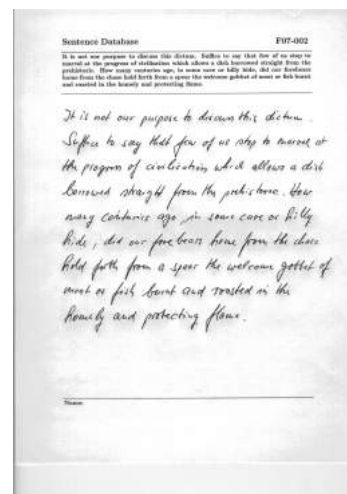 Sentence Database F07-002
It is not our purpose to discuss this dictum. Suffice to say that few of us stop to
marvel at the progress of civilisation which allows a dish borrowed straight from the
prehistoric. How many centuries ago, in some cave or hilly hide, did our forebears
home from the chase hold forth from a spear the welcome gobbet of meat or fish burnt
and roasted in the homely and protecting flame.
It is not our purpose to discuss this dictum.
Suffice to say that few of us stop to marvel at
the progress of civilisation which allows a dish
borrowed straight from the prehistoric. How
many centuries ago, in some cave or hilly
hide, did our forebears home from the chase
hold forth from a spear the welcome gobbet of
meat or fish burnt and roasted in the
homely and protecting flame.
Name: